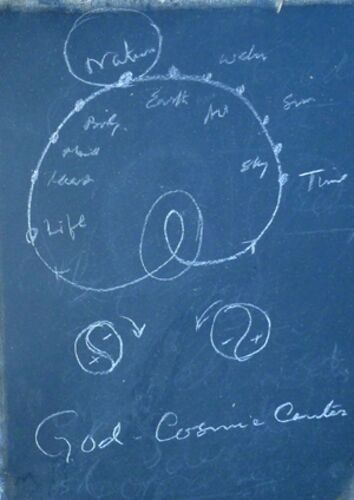 Nature
Water
Earth
Air
Sun
Body
Mind
Sky
Time
Life
- +
- +
God - Cosmic Center